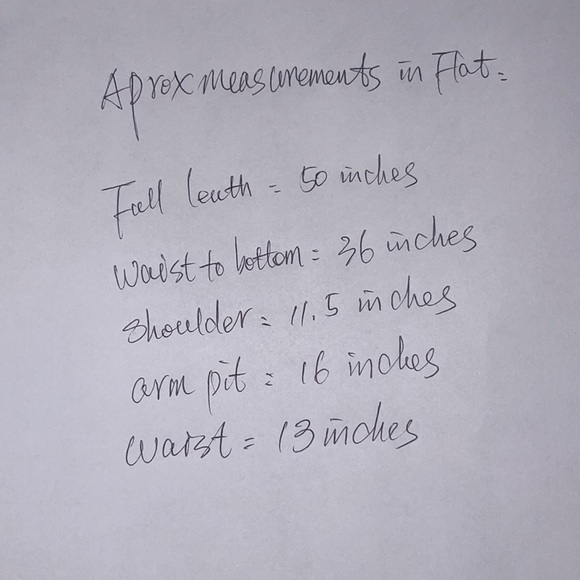 Aprox measurements in Flat =
Full leuth = 50 inches
Waist to bottom = 36 inches
Shoulder = 11.5 inches
arm pit = 16 inches
Waist = 13 inches